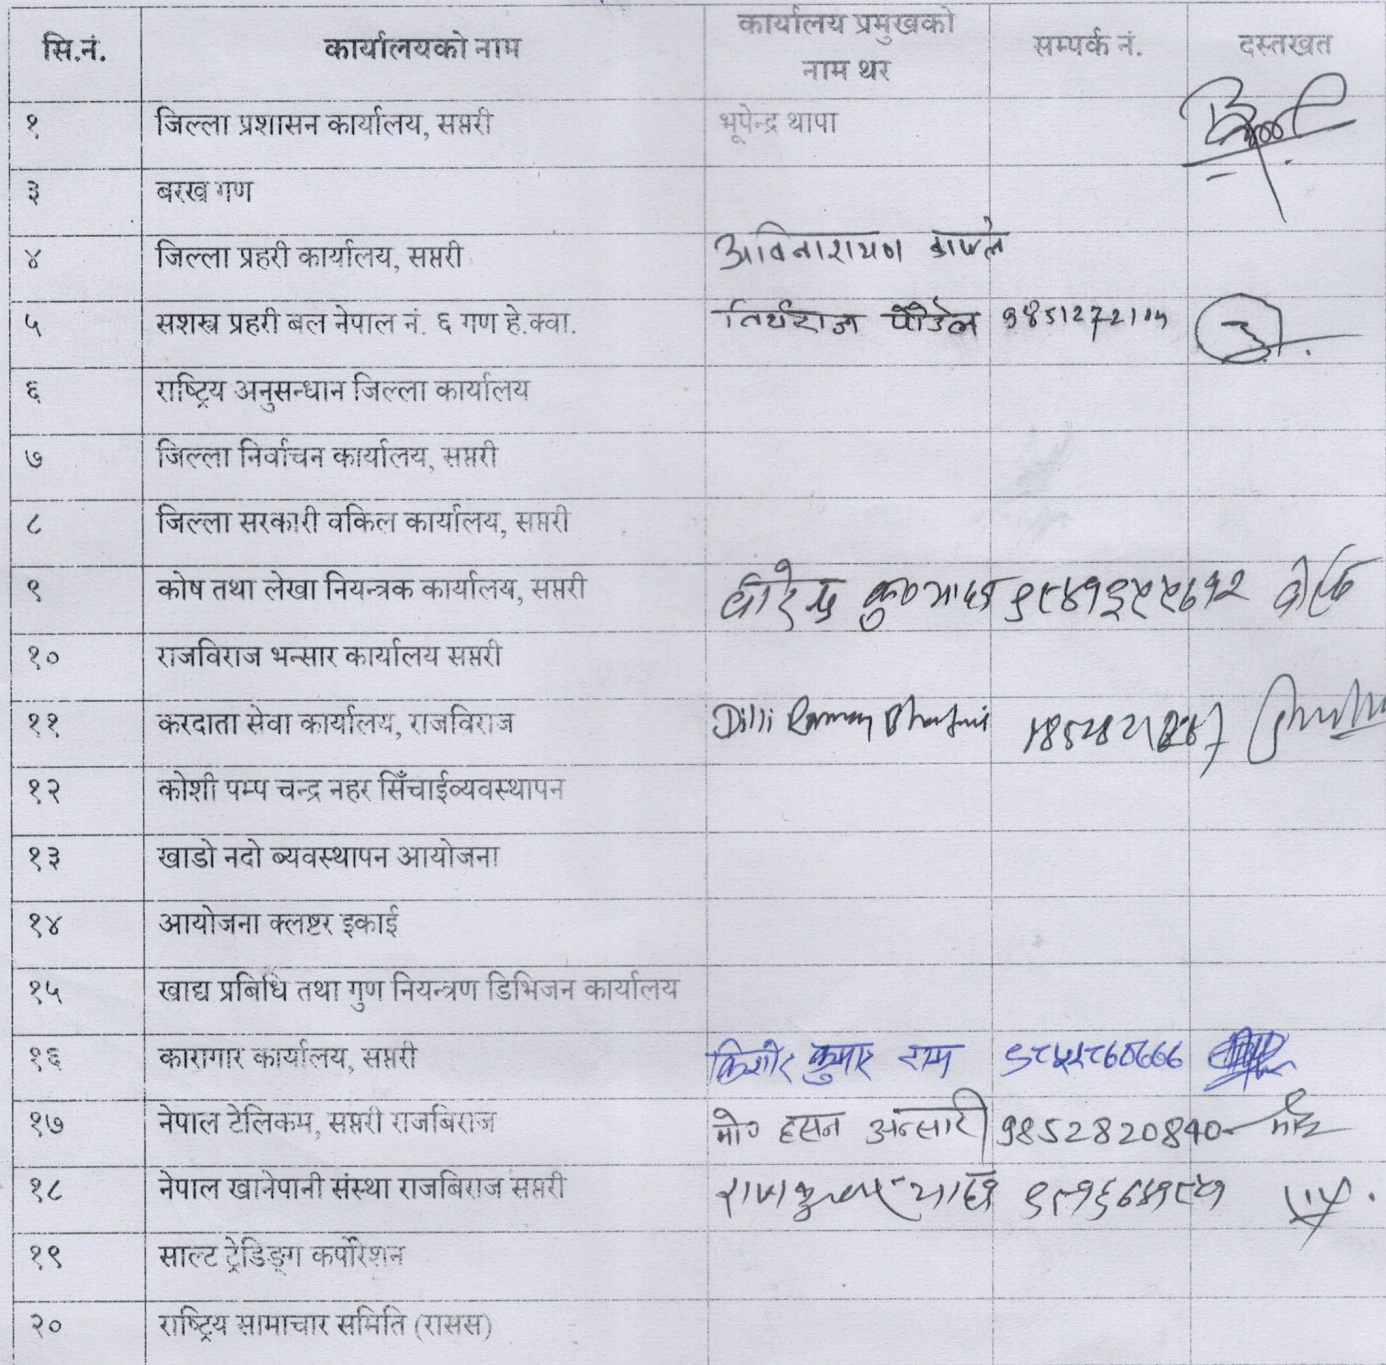 सि.नं. कार्यालयको नाम कार्यालय प्रमुखको नाम थर सम्पर्क नं. दस्तखत
१ जिल्ला प्रशासन कार्यालय, सप्तरी भूपेन्द्र थापा
३ बरख गण
४ जिल्ला प्रहरी कार्यालय, सप्तरी
५ सशस्त्र प्रहरी बल नेपाल नं. ६ गण हे.क्वा. तिर्थराज पौडेल
६ राष्ट्रिय अनुसन्धान जिल्ला कार्यालय
७ जिल्ला निर्वाचन कार्यालय, सप्तरी
८ जिल्ला सरकारी वकिल कार्यालय, सप्तरी
९ कोष तथा लेखा नियन्त्रक कार्यालय, सप्तरी
१० राजविराज भन्सार कार्यालय सप्तरी
११ करदाता सेवा कार्यालय, राजविराज Dilli Raman
१२ कोशी पम्प चन्द्र नहर सिँचाईव्यवस्थापन
१३ खाडो नदो ब्यवस्थापन आयोजना
१४ आयोजना क्लष्टर इकाई
१५ खाद्य प्रबिधि तथा गुण नियन्त्रण डिभिजन कार्यालय
१६ कारागार कार्यालय, सप्तरी किशोर कुमार राम
१७ नेपाल टेलिकम, सप्तरी राजबिराज मो० हसन अन्सारी 9852820840
१८ नेपाल खानेपानी संस्था राजबिराज सप्तरी
१९ साल्ट ट्रेडिङ्ग कर्पोरेशन
२० राष्ट्रिय सामाचार समिति (रासस)